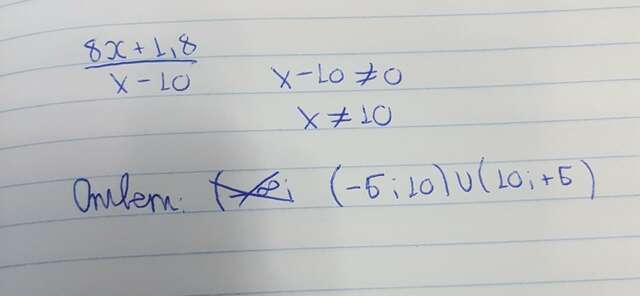 8x+1,8
x-10
x-10≠0
x≠10
Ответ: (-5;10)∪(10;+5)